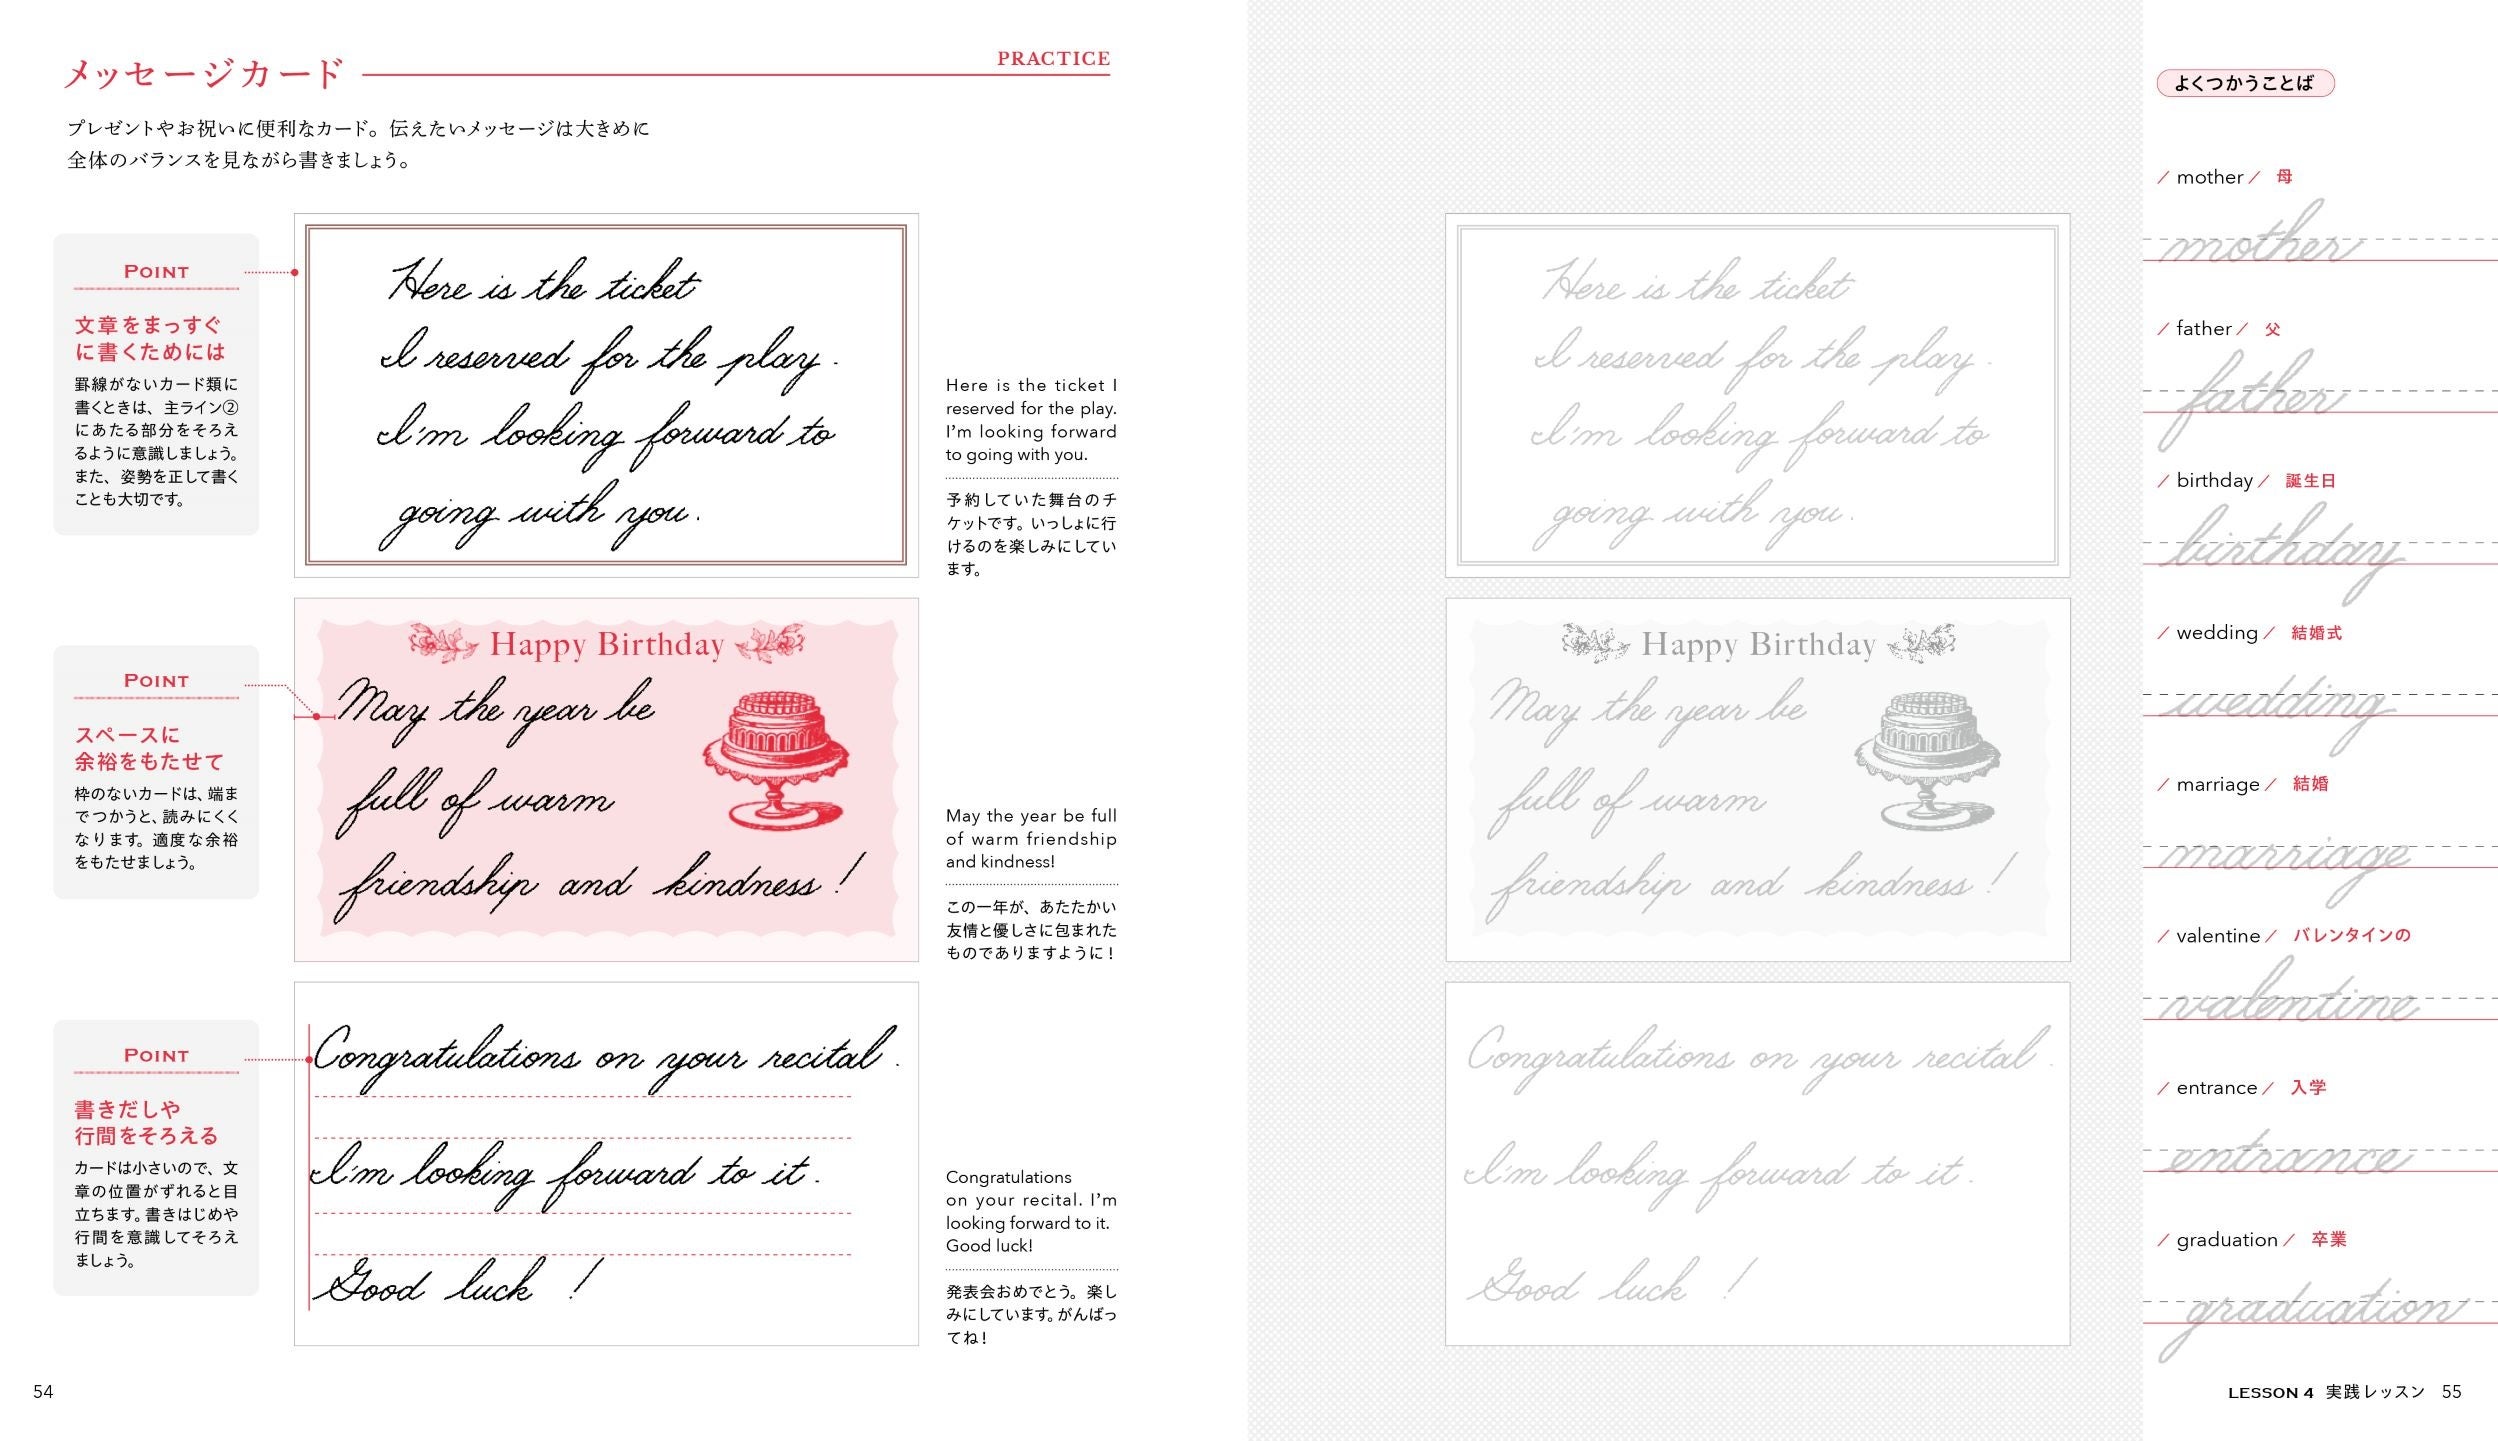 メッセージカード
PRACTICE
プレゼントやお祝いに便利なカード。伝えたいメッセージは大きめに
全体のバランスを見ながら書きましょう。
POINT
文章をまっすぐ
に書くためには
罫線がないカード類に
書くときは、主ライン②
にあたる部分をそろえ
るように意識しましょう。
また、姿勢を正して書く
ことも大切です。
Here is the ticket
I reserved for the play.
I'm looking forward to
going with you.
Here is the ticket I
reserved for the play.
I'm looking forward
to going with you.
予約していた舞台のチ
ケットです。いっしょに行
けるのを楽しみにしてい
ます。
POINT
スペースに
余裕をもたせて
枠のないカードは、端ま
でつかうと、読みにくく
なります。適度な余裕
をもたせましょう。
Happy Birthday
May the year be
full of warm
friendship and kindness!
May the year be full
of warm friendship
and kindness!
この一年が、あたたかい
友情と優しさに包まれた
ものでありますように!
POINT
書きだしや
行間をそろえる
カードは小さいので、文
章の位置がずれると目
立ちます。書きはじめや
行間を意識してそろえ
ましょう。
Congratulations on your recital.
I'm looking forward to it.
Good luck!
Congratulations
on your recital. I'm
looking forward to it.
Good luck!
発表会おめでとう。楽し
みにしています。がんばっ
てね!
54
Here is the ticket
I reserved for the play.
I'm looking forward to
going with you.
Happy Birthday
May the year be
full of warm
friendship and kindness!
Congratulations on your recital.
I'm looking forward to it.
Good luck!
よくつかうことば
/ mother / 母
mother
/ father / 父
father
/ birthday / 誕生日
birthday
/ wedding / 結婚式
wedding
/ marriage / 結婚
marriage
/ valentine / バレンタインの
valentine
/ entrance / 入学
entrance
/ graduation / 卒業
graduation
LESSON 4 実践レッスン 55